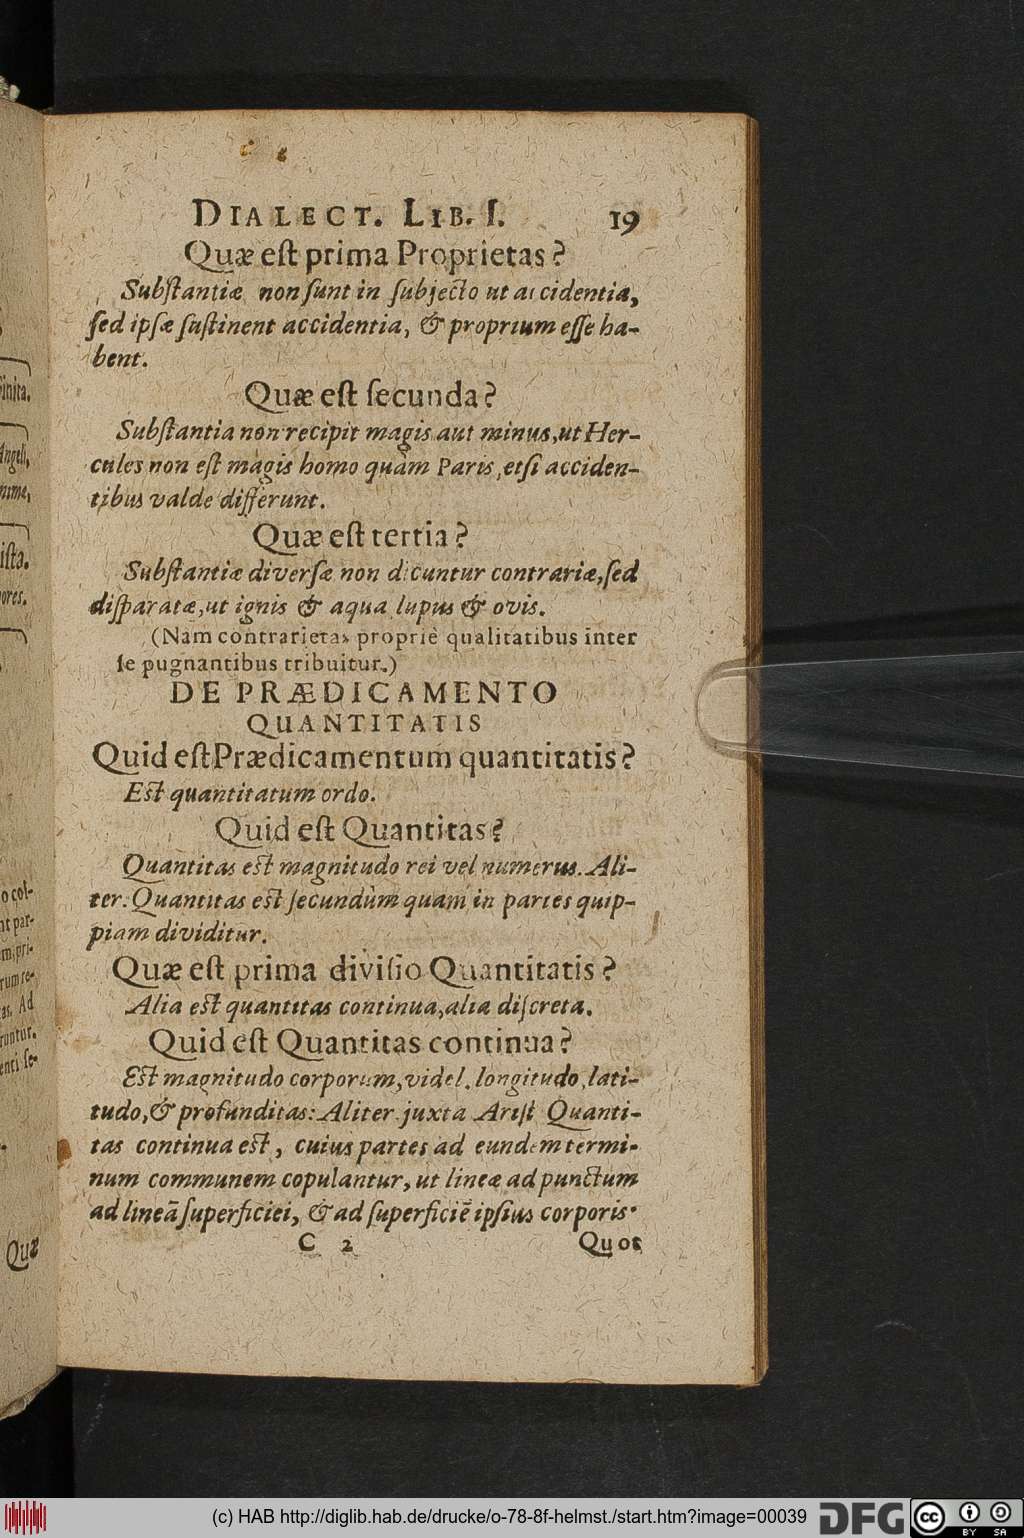 DIALECT. LIB. I. 19
Quæ eſt prima Proprietas?
Subſtantiæ non ſunt in ſubjecto ut accidentia,
ſed ipſæ ſuſtinent accidentia, & proprium eſſe ha-
bent.
Quæ eſt ſecunda?
Subſtantia non recipit magis aut minus, ut Her-
cules non eſt magis homo quàm Paris, etſi acciden-
tibus valde differunt.
Quæ eſt tertia?
Subſtantiæ diverſæ non dicuntur contrariæ, ſed
diſparatæ, ut ignis & aqua lupus & ovis.
(Nam contrarietas propriè qualitatibus inter
ſe pugnantibus tribuitur.)
DE PRÆDICAMENTO
QUANTITATIS
Quid eſt Prædicamentum quantitatis?
Eſt quantitatum ordo.
Quid eſt Quantitas?
Quantitas eſt magnitudo rei vel numerus. Ali-
ter. Quantitas eſt ſecundùm quam in partes quip-
piam dividitur.
Quæ eſt prima diviſio Quantitatis?
Alia eſt quantitas continua, alia diſcreta.
Quid eſt Quantitas continua?
Eſt magnitudo corporum, videl. longitudo, lati-
tudo, & profunditas: Aliter juxta Ariſt Quanti-
tas continua est, cuius partes ad eundem termi-
num communem copulantur, ut lineæ ad punctum
ad lineā ſuperficiei, & ad ſuperficiē ipſius corporis.
C 2 Quot
inita.
Angeli,
iſta.
ores.
o col-
nt par-
m, pri-
rum re-
as. Ad
runtur.
enti ſe-
Quæ
(c) HAB http://diglib.hab.de/drucke/o-78-8f-helmst./start.htm?image=00039
DFG
cc
BY SA